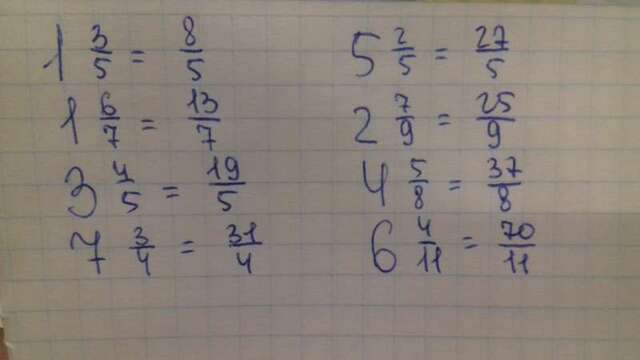 1 3/5 = 8/5
1 6/7 = 13/7
3 4/5 = 19/5
7 3/4 = 31/4
5 2/5 = 27/5
2 7/9 = 25/9
4 5/8 = 37/8
6 4/11 = 70/11